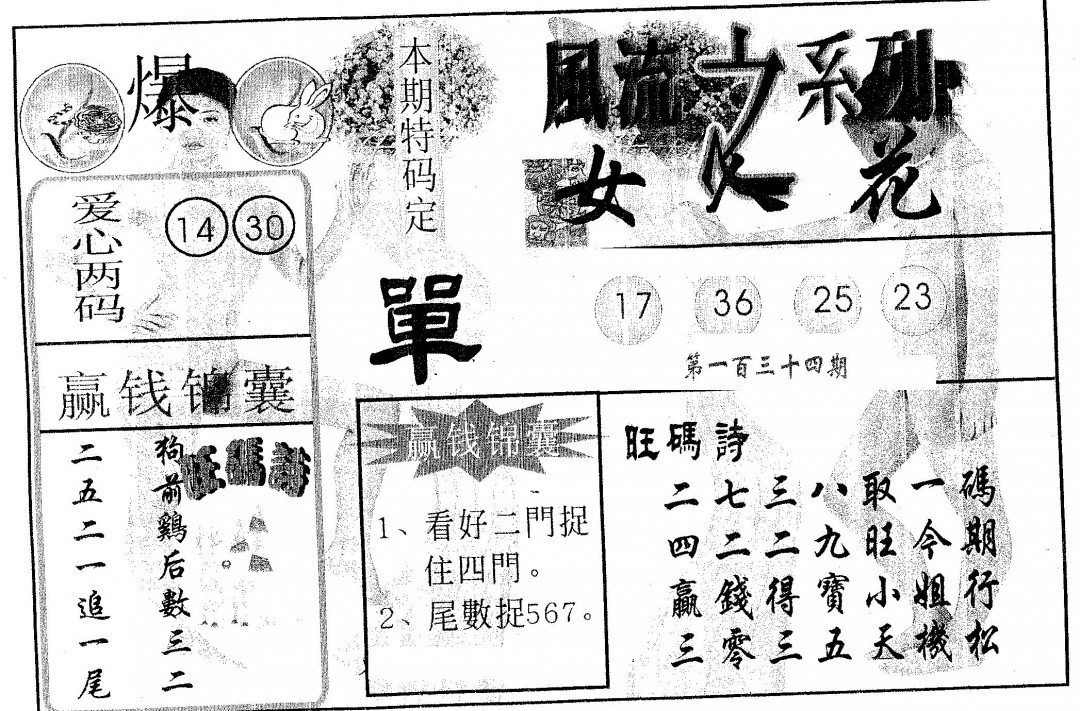 爆
爱心两码
14 30
赢钱锦囊
狗前鷄后數三二
二五二一追一尾
旺碼詩
本期特码定
單
風流之系列
女人花
17 36 25 23
第一百三十四期
赢钱锦囊
1、看好二門捉
住四門。
2、尾數捉567。
旺碼詩
碼期行松
一今姐機
取旺小天
八九寶五
三二得三
七二錢零
二四贏三